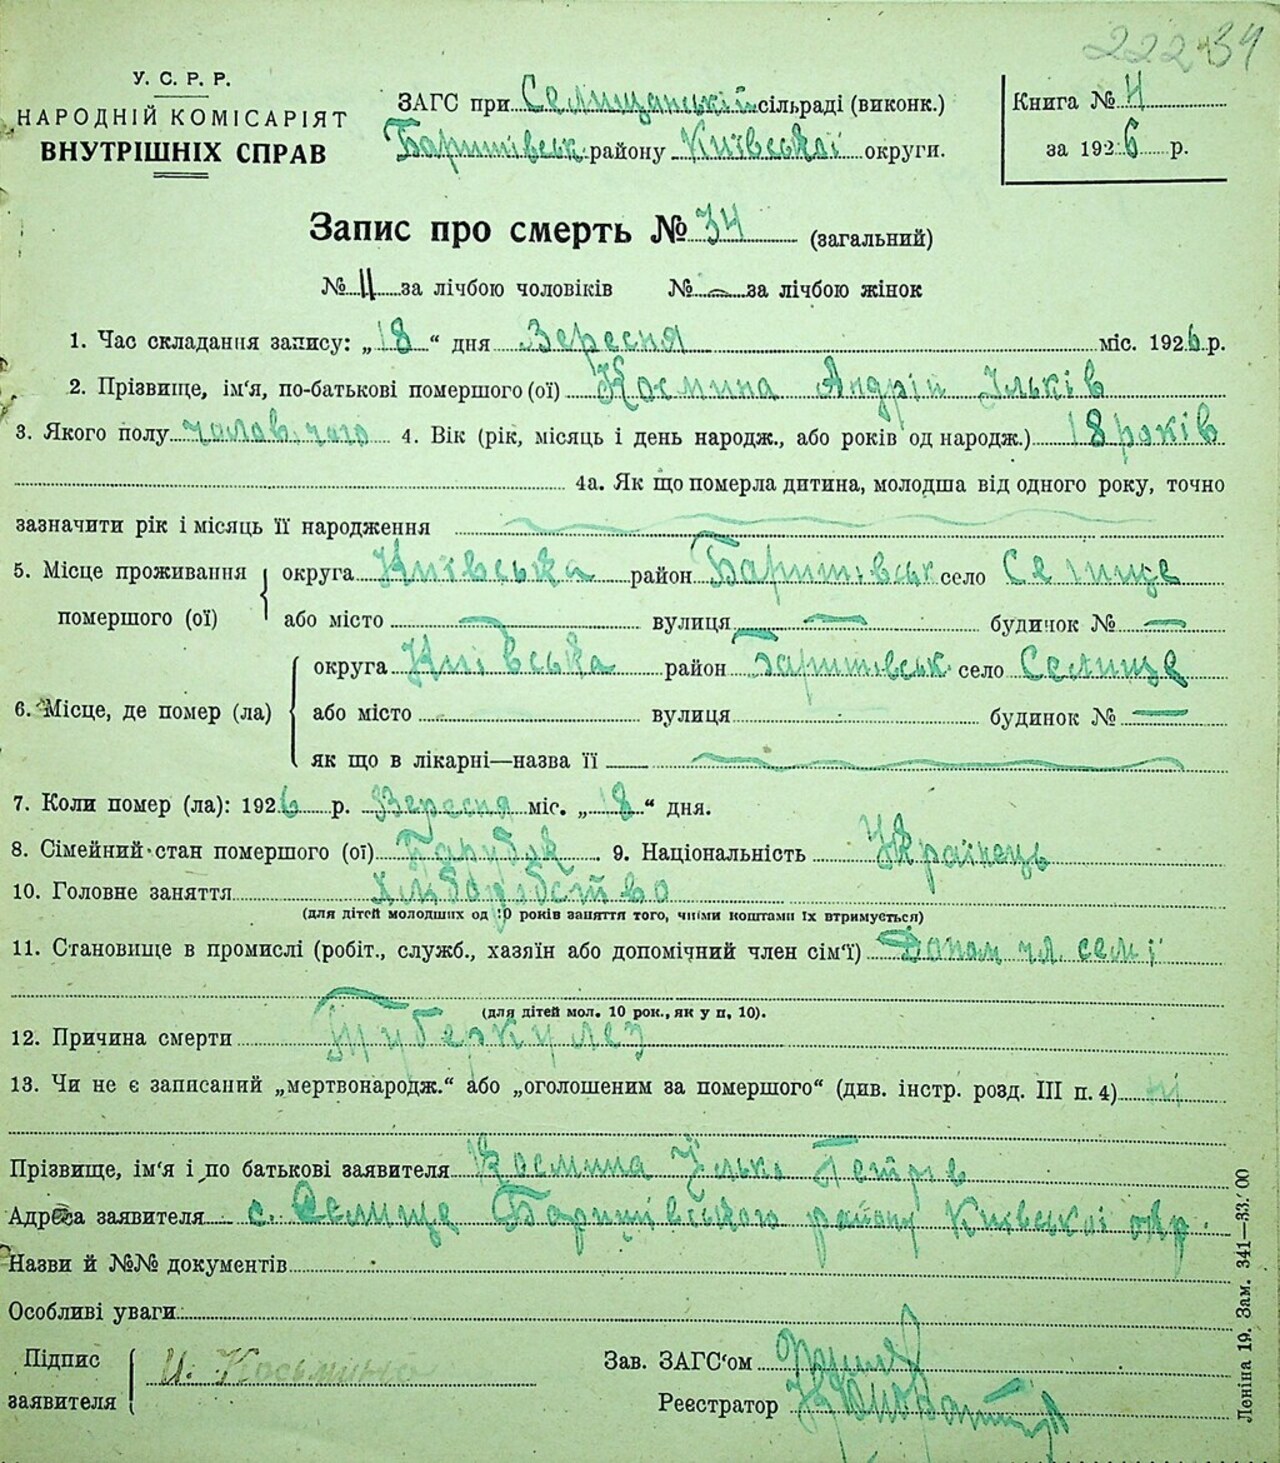 222 34
У. С. Р. Р.
НАРОДНІЙ КОМІСАРІЯТ
ВНУТРІШНІХ СПРАВ
ЗАГС при Селищанській сільраді (виконк.)
Баришівськ. району Київської округи.
Книга № 4
за 1926 р.
Запис про смерть № 34 (загальний)
№ 11 за лічбою чоловіків № — за лічбою жінок
1. Час складання запису: „18“ дня Вересня міс. 1926 р.
2. Прізвище, ім‘я, по-батькові помершого (ої) Космина Андрій Ільків
3. Якого полу чолов.чого 4. Вік (рік, місяць і день народж., або років од народж.) 18 років
4а. Як що померла дитина, молодша від одного року, точно
зазначити рік і місяць її народження
5. Місце проживання округа Київська район Баришівськ село Селище
помершого (ої) або місто — вулиця — будинок № —
округа Київська район Баришівськ село Селище
6. Місце, де помер (ла) або місто вулиця будинок № —
як що в лікарні—назва її
7. Коли помер (ла): 1926 р. Вересня міс. „18“ дня.
8. Сімейний стан помершого (ої) Парубок 9. Національність Українець
10. Головне заняття Хліборобство
(для дітей молодших од 10 років заняття того, чиїми коштами їх втримується)
11. Становище в промислі (робіт., служб., хазяїн або допомічний член сім‘ї) Допом чл. семі
(для дітей мол. 10 рок., як у п. 10).
12. Причина смерти Туберкульоз
13. Чи не є записаний „мертвонародж.“ або „оголошеним за помершого“ (див. інстр. розд. III п. 4) ні
Прізвище, ім‘я і по батькові заявителя Космина Ілько Петрів
Адреса заявителя с. Селище Баришівського району Київської окр.
Назви й №№ документів
Особливі уваги
Підпис заявителя И. Косьмина
Зав. ЗАГС‘ом
Реєстратор
Леніна 19. Зам. 341—33.000